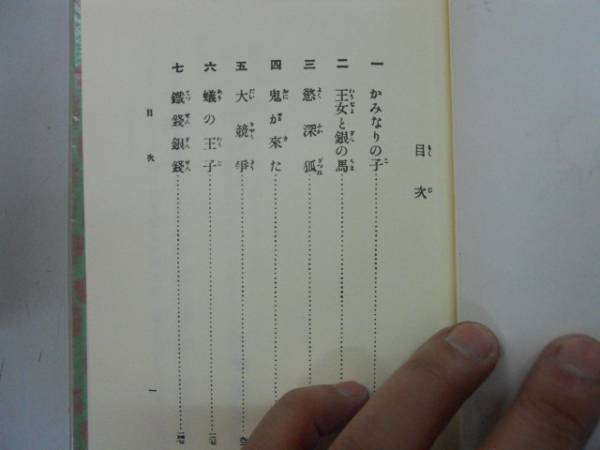 目次
一 かみなりの子
二 王女と銀の馬
三 慾深狐
四 鬼が來た
五 大競爭
六 蟻の王子
七 鐵錢銀錢
目次
一